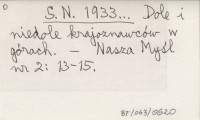 S. N. 1933... Dole i
niedole krajoznawców w
górach. – Nasza Myśl
nr 2: 13-15.
BT/043/0520